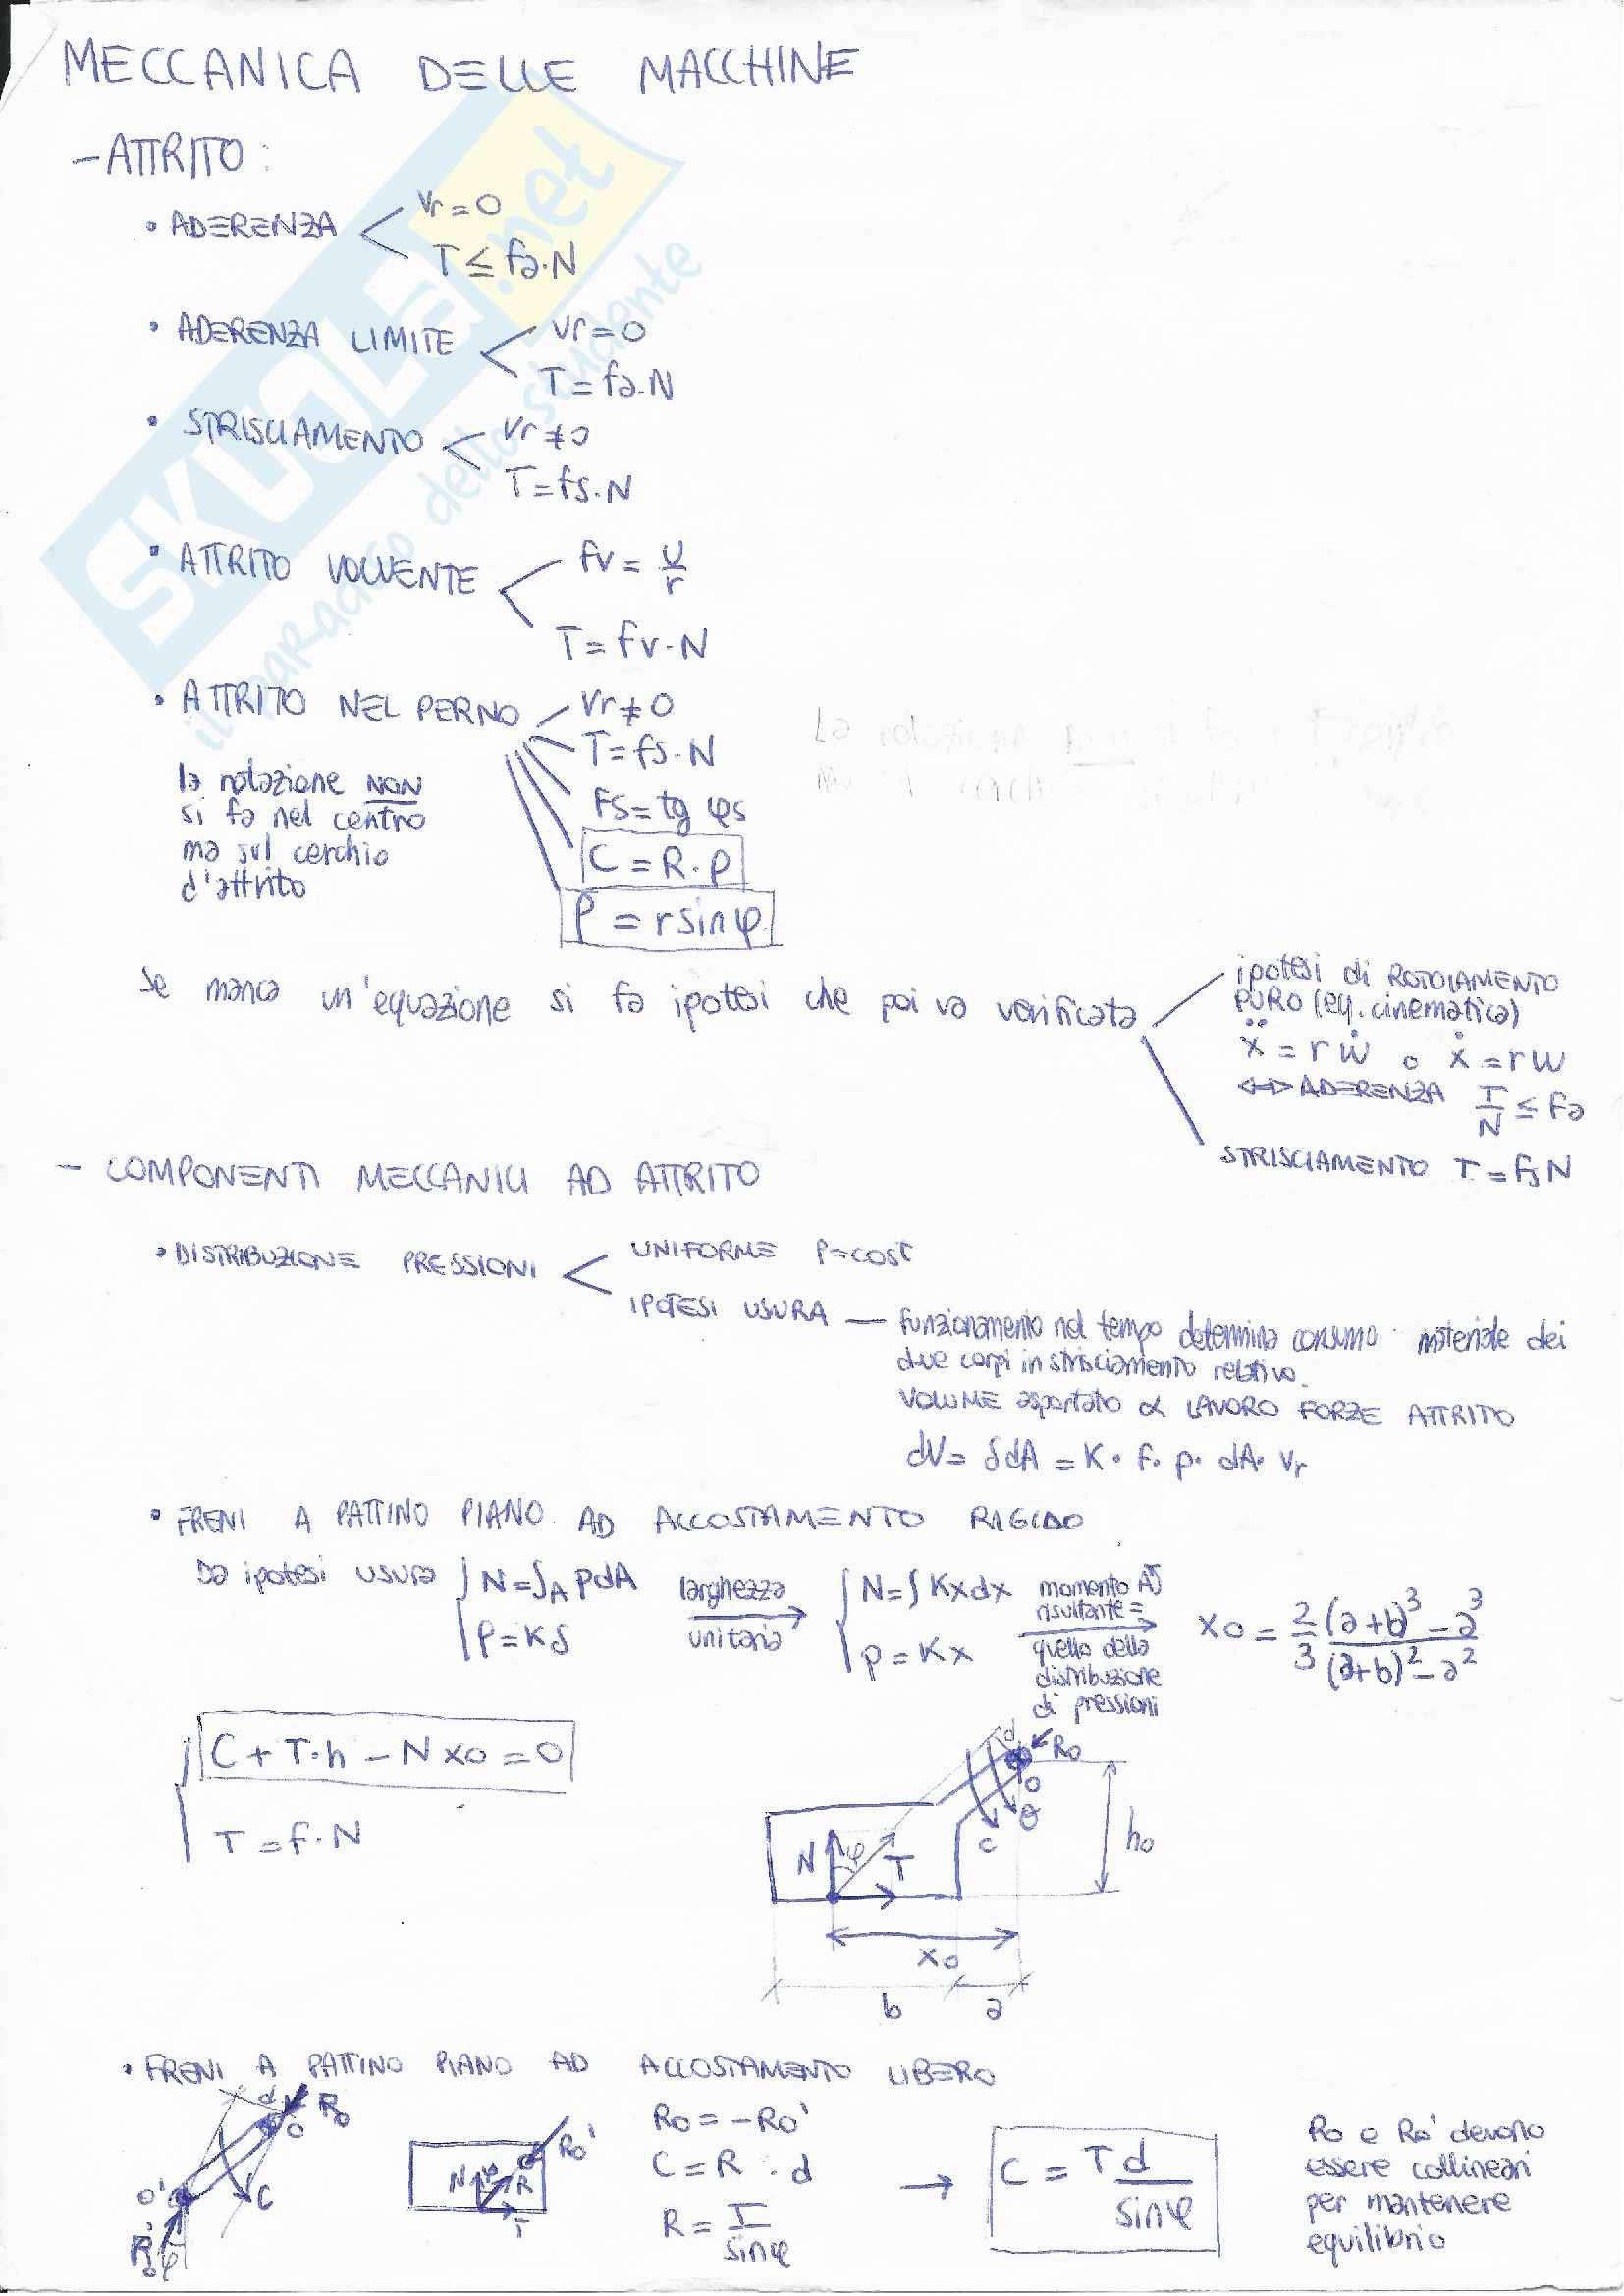 MECCANICA DELLE MACCHINE
- ATTRITO:
• ADERENZA
Vr = 0
T ≤ fa·N
• ADERENZA LIMITE
Vr = 0
T = fa·N
• STRISCIAMENTO
Vr ≠ 0
T = fs·N
• ATTRITO VOLVENTE
fv = U/r
T = fv·N
• ATTRITO NEL PERNO
Vr ≠ 0
T = fs·N
fs = tg φs
C = R·ρ
ρ = r sin φ
la rotazione NON
si fa nel centro
ma sul cerchio
d'attrito
Se manca un'equazione si fa ipotesi che poi va verificata
ipotesi di ROTOLAMENTO
PURO (eq. cinematica)
ẍ = r ẇ o ẋ = r w
<=> ADERENZA T/N ≤ fa
STRISCIAMENTO T = fs N
- COMPONENTI MECCANICI AD ATTRITO
• DISTRIBUZIONE PRESSIONI
UNIFORME P=COST
IPOTESI USURA — funzionamento nel tempo determina consumo materiale dei
due corpi in strisciamento relativo.
VOLUME asportato α LAVORO FORZE ATTRITO
dV = δdA = K · f · p · dA · Vr
• FRENI A PATTINO PIANO AD ACCOSTAMENTO RIGIDO
Da ipotesi usura
N = ∫A pdA
P = Kδ
larghezza
unitaria
N = ∫ Kxdx
p = Kx
momento
risultante =
quello della
distribuzione
di pressioni
x0 = 2/3 ((a+b)³ - a³)/((a+b)² - a²)
C + T·h - N x0 = 0
T = f·N
d
R0
O
θ
C
N
φ
T
h0
x0
b
a
• FRENI A PATTINO PIANO AD ACCOSTAMENTO LIBERO
d
R0
O
C
O'
R0'
φ
N
φ
R
T
R0'
R0 = -R0'
C = R · d
R = T/sin φ
→
C = T d/sin φ
R0 e R0' devono
essere collineari
per mantenere
equilibrio
SKUOLA.net
il paradiso dello studente